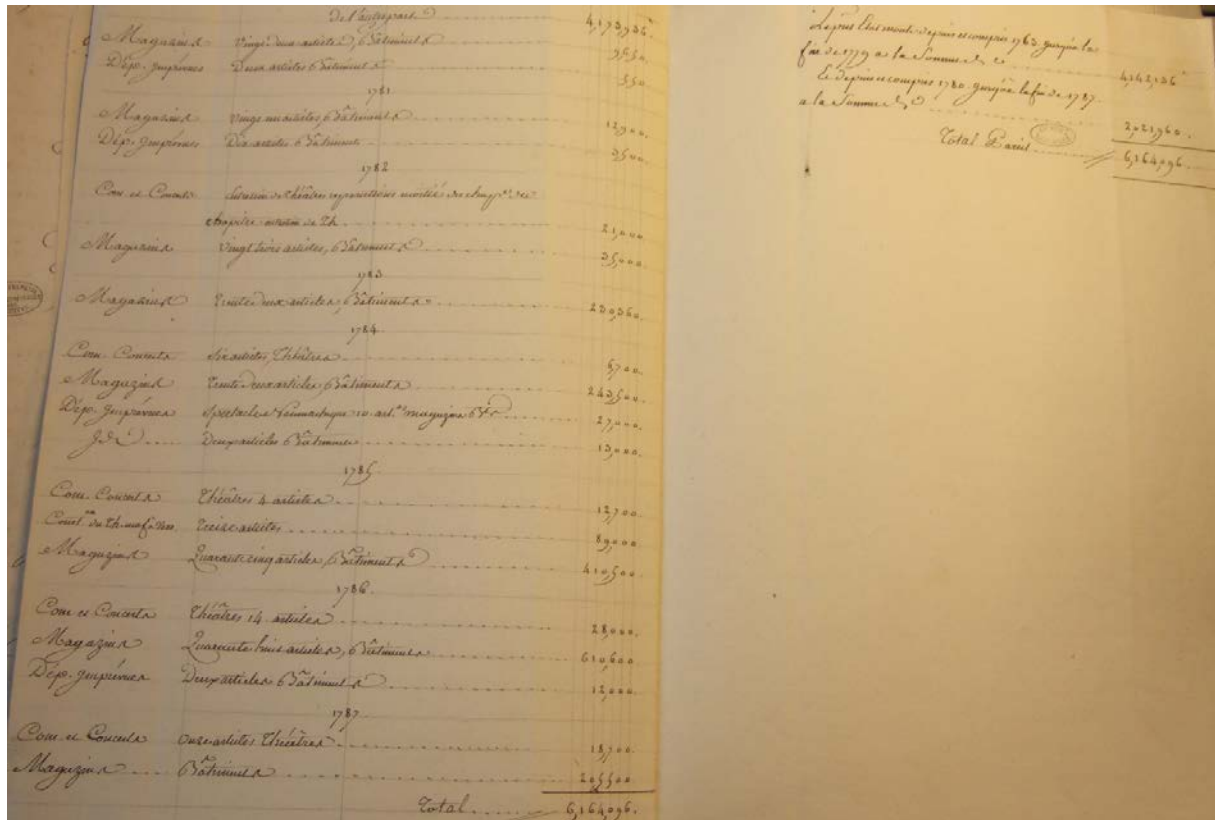 De l'autre part 4,173,936.
Magasins Vingt deux articles, Bâtiments 9,650.
Dép. Imprévues Deux articles Bâtiments 550.
1781.
Magasins Vingt un articles, Bâtiments 12,900.
Dép. Imprévues Dix articles Bâtiments 3,500.
1782
Com. et Concerts de Théâtres moitié des
chapitre de Th. 21,000.
Magasins Vingt trois articles, Bâtiments 35,000.
1783
Magasins Trente deux articles, Bâtiments 230,360.
1784.
Com. Concerts Six articles, Théâtres 6,700.
Magazins Trente deux articles, Bâtiments 243,500.
Dép. Imprévues Spectacle Pneumatique 10 art.es magazins Bts 27,000.
Id. Deux articles Bâtiments 13,000.
1785.
Com. Concerts Théâtres 4 articles 12,700.
Const.on du Th. Treize articles 89,000.
Magazins Quarante cinq articles, Bâtiments 410,500.
1786.
Com et Concerts Théâtres 14 articles 28,000.
Magazins Quarante huit articles, Bâtiments 610,600
Dép. Imprévues Deux articles Bâtiments 12,000
1787.
Com. et Concerts Onze articles Théâtres 18,700.
Magazins Bâtiments 205,500
Total 6,164,096.
depuis et compris 1763. jusqu'à la
fin de 1779 a la Somme de 4,142,136
Et depuis et compris 1780. jusqu'à la fin de 1787.
a la Somme de 2,021,960.
Total Pareil 6,164,096.